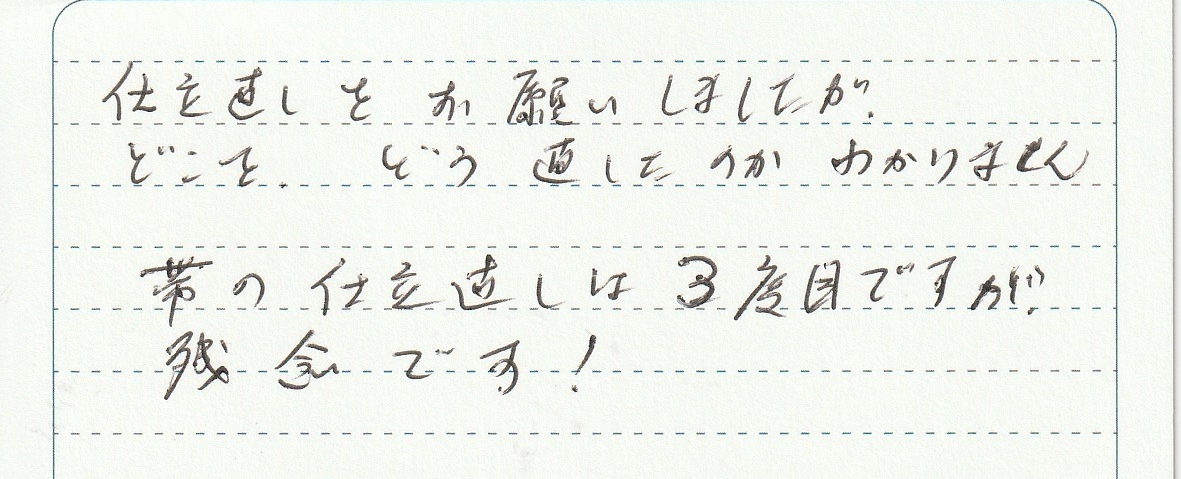 仕立直しをお願いしましたが、
どこを、どう直したのかわかりません
帯の仕立直しは3度目ですが、
残念です!